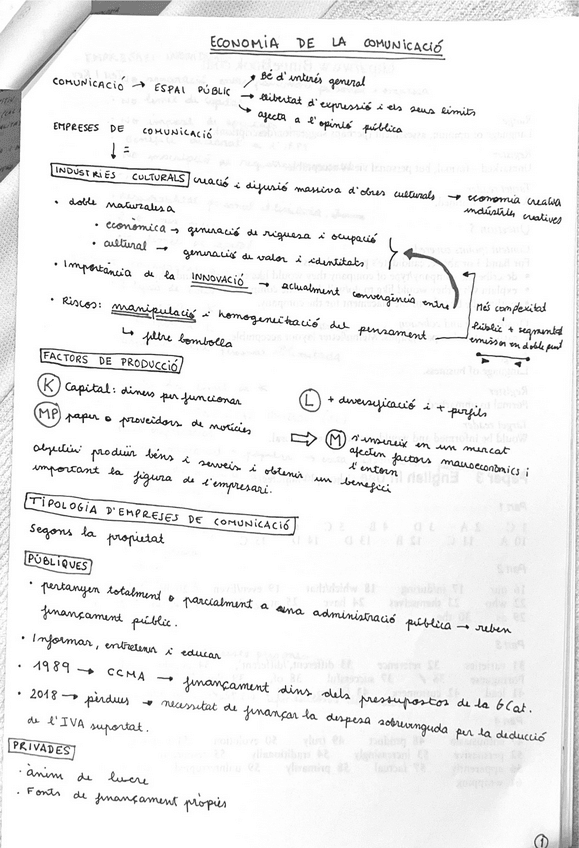 ECONOMIA DE LA COMUNICACIÓ
COMUNICACIÓ → ESPAI PÚBLIC
→ Bé d'interés general
→ llibertat d'expressió i els seus límits
→ afecta a l'opinió pública
EMPRESES DE COMUNICACIÓ
↓ =
INDÚSTRIES CULTURALS creació i difusió massiva d'obres culturals → economia creativa
indústries creatives
· doble naturalesa
· econòmica → generació de riquesa i ocupació
· cultural → generació de valor i identitats
· Importància de la INNOVACIÓ → actualment convergència entre
· Riscos: manipulació i homogeneïtzació del pensament
↳ filtre bombolla
Més complexitat
Públic + segmentat
emissor en doble punt
FACTORS DE PRODUCCIÓ
K Capital: diners per funcionar
L + diversificació i + perfils
MP paper o proveïdors de notícies
⇒ M s'insereix en un mercat
afecten factors macroeconòmics i
l'entorn
objectiu produir béns i serveis i obtenir un benefici
important la figura de l'empresari.
TIPOLOGIA D'EMPRESES DE COMUNICACIÓ
segons la propietat
PÚBLIQUES
· pertanyen totalment o parcialment a una administració pública → reben
finançament públic.
· Informar, entretenir i educar
· 1989 → CCMA → finançament dins dels pressupostos de la GCat.
· 2018 → pèrdues → necessitat de finançar la despesa sobrevinguda per la deducció
de l'IVA suportat.
PRIVADES
· ànim de lucre
· Fonts de finançament pròpies
1